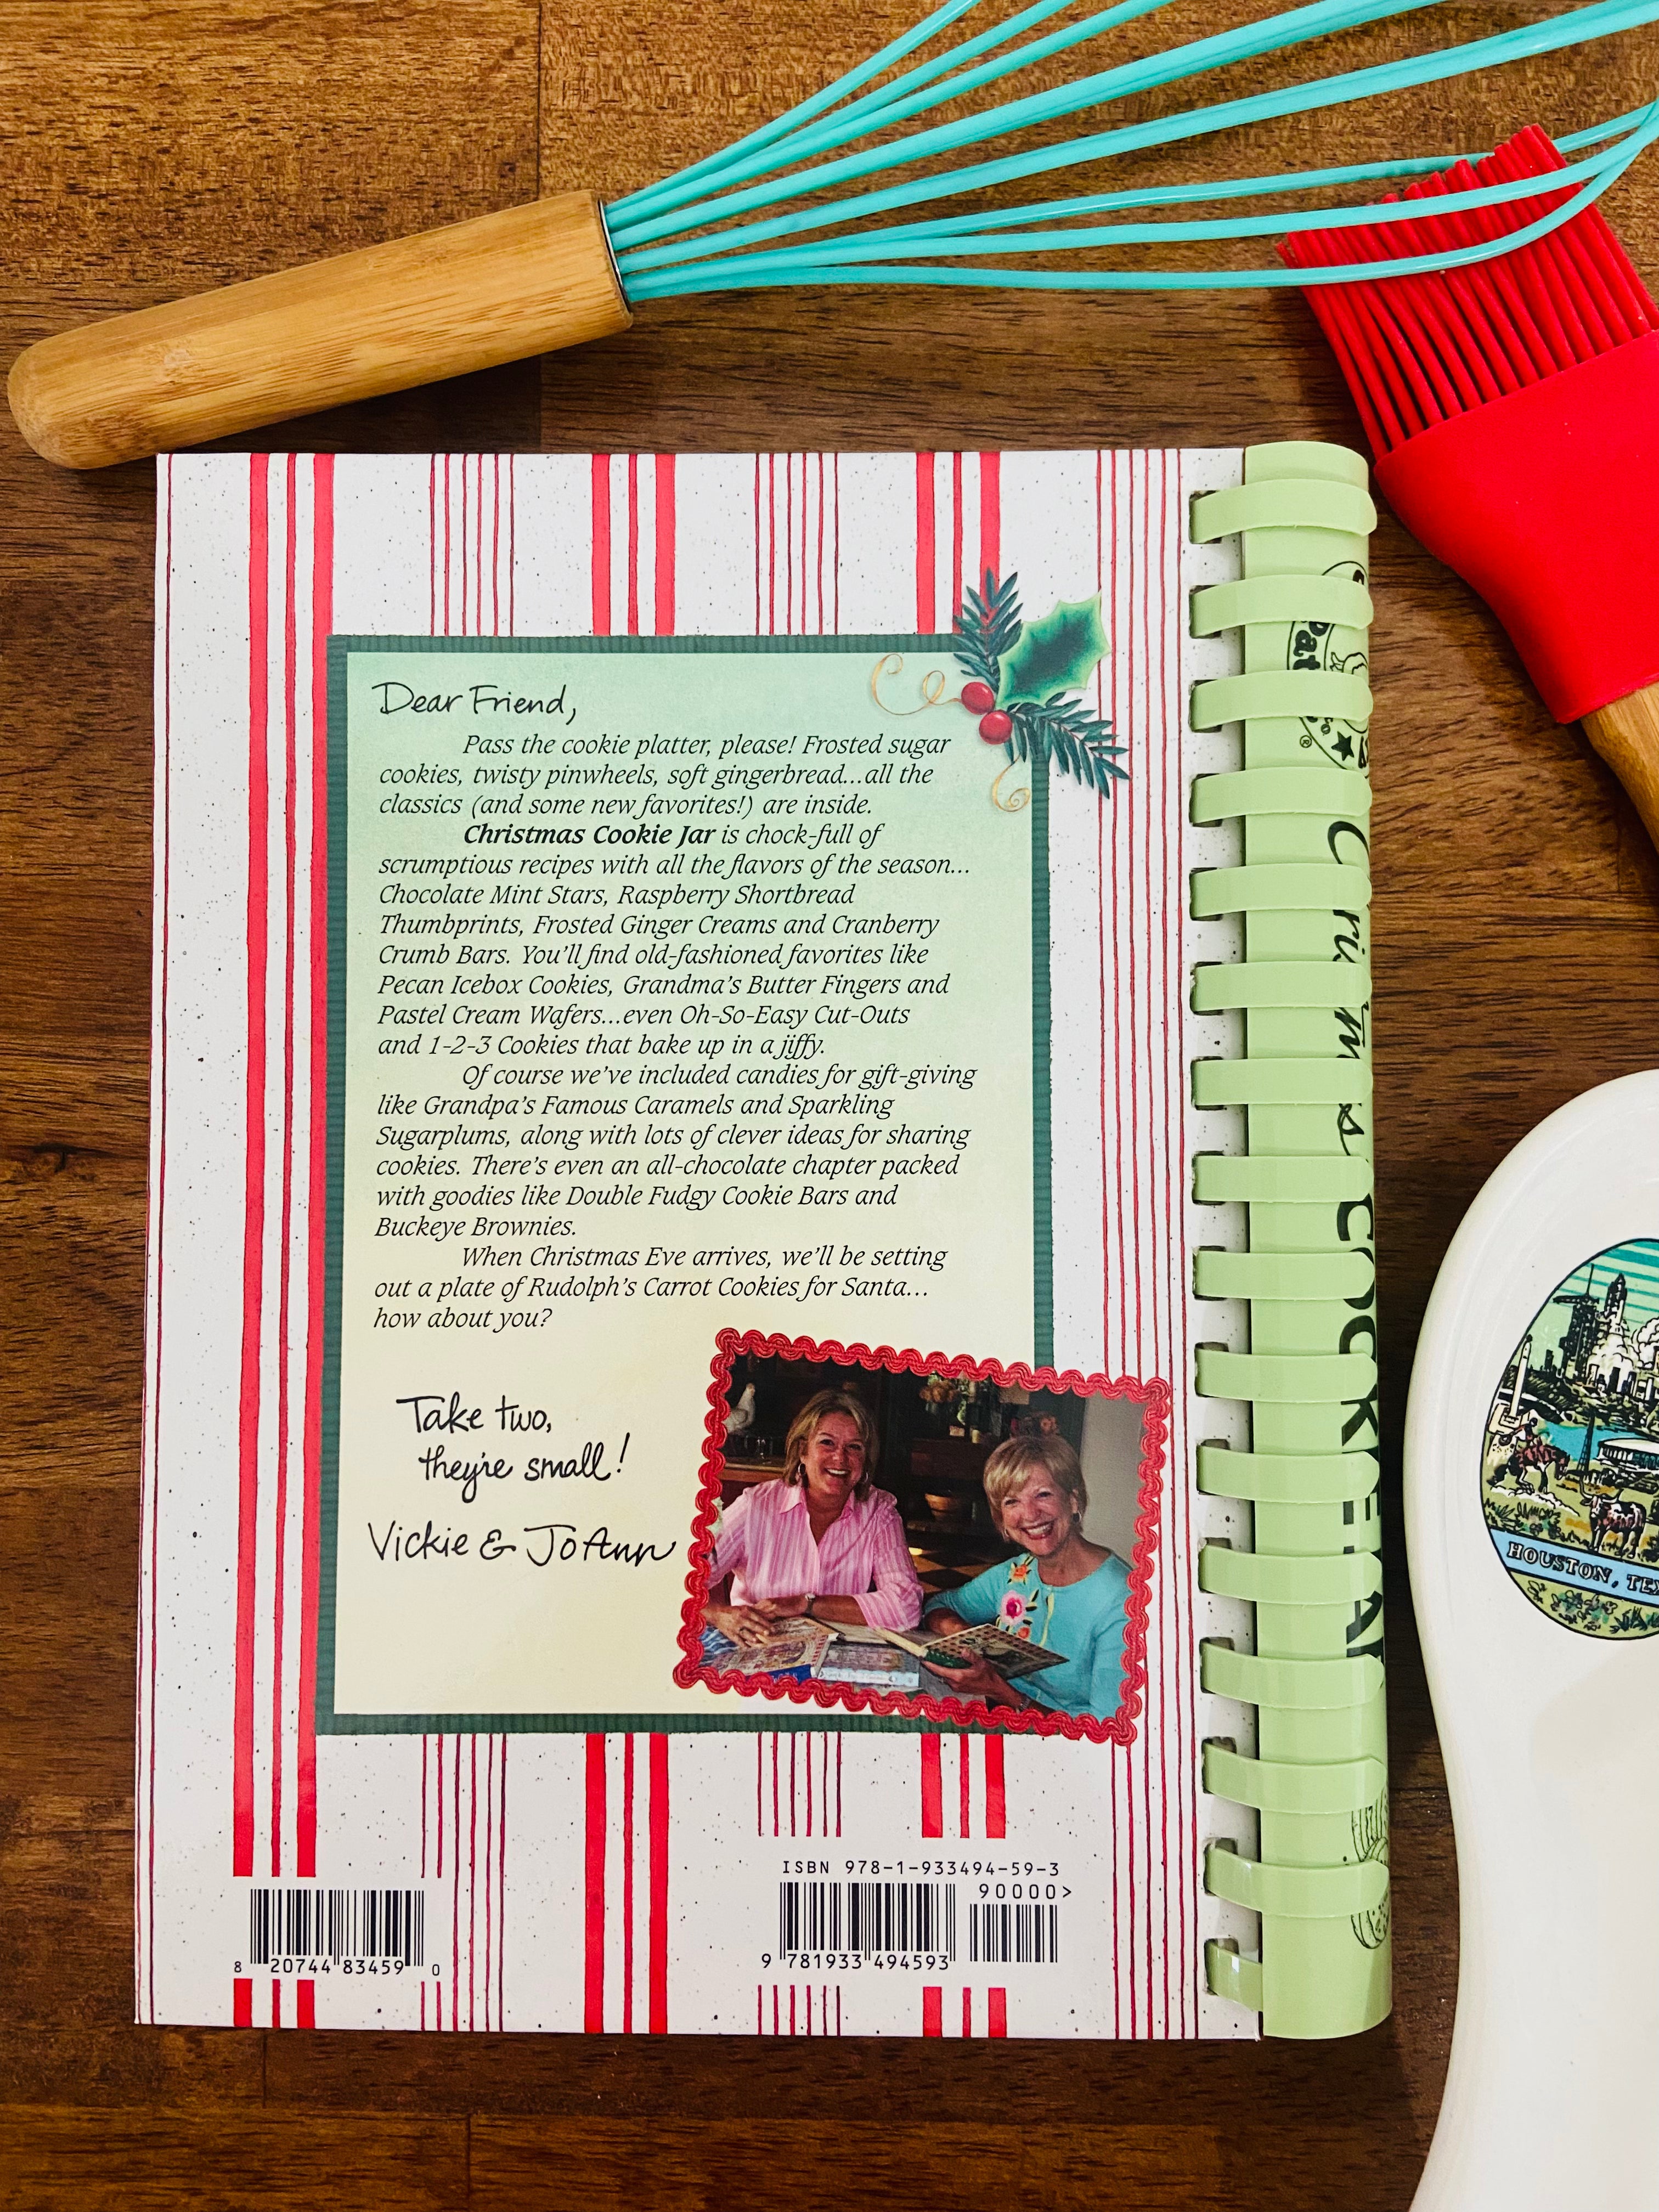 Dear Friend,
Pass the cookie platter, please! Frosted sugar
cookies, twisty pinwheels, soft gingerbread...all the
classics (and some new favorites!) are inside.
Christmas Cookie Jar is chock-full of
scrumptious recipes with all the flavors of the season...
Chocolate Mint Stars, Raspberry Shortbread
Thumbprints, Frosted Ginger Creams and Cranberry
Crumb Bars. You'll find old-fashioned favorites like
Pecan Icebox Cookies, Grandma's Butter Fingers and
Pastel Cream Wafers...even Oh-So-Easy Cut-Outs
and 1-2-3 Cookies that bake up in a jiffy.
Of course we've included candies for gift-giving
like Grandpa's Famous Caramels and Sparkling
Sugarplums, along with lots of clever ideas for sharing
cookies. There's even an all-chocolate chapter packed
with goodies like Double Fudgy Cookie Bars and
Buckeye Brownies.
When Christmas Eve arrives, we'll be setting
out a plate of Rudolph's Carrot Cookies for Santa...
how about you?
Take two,
they're small!
Vickie & JoAnn
ISBN 978-1-933494-59-3
90000>
9 781933 494593
8 20744 83459 0
HOUSTON, TEX